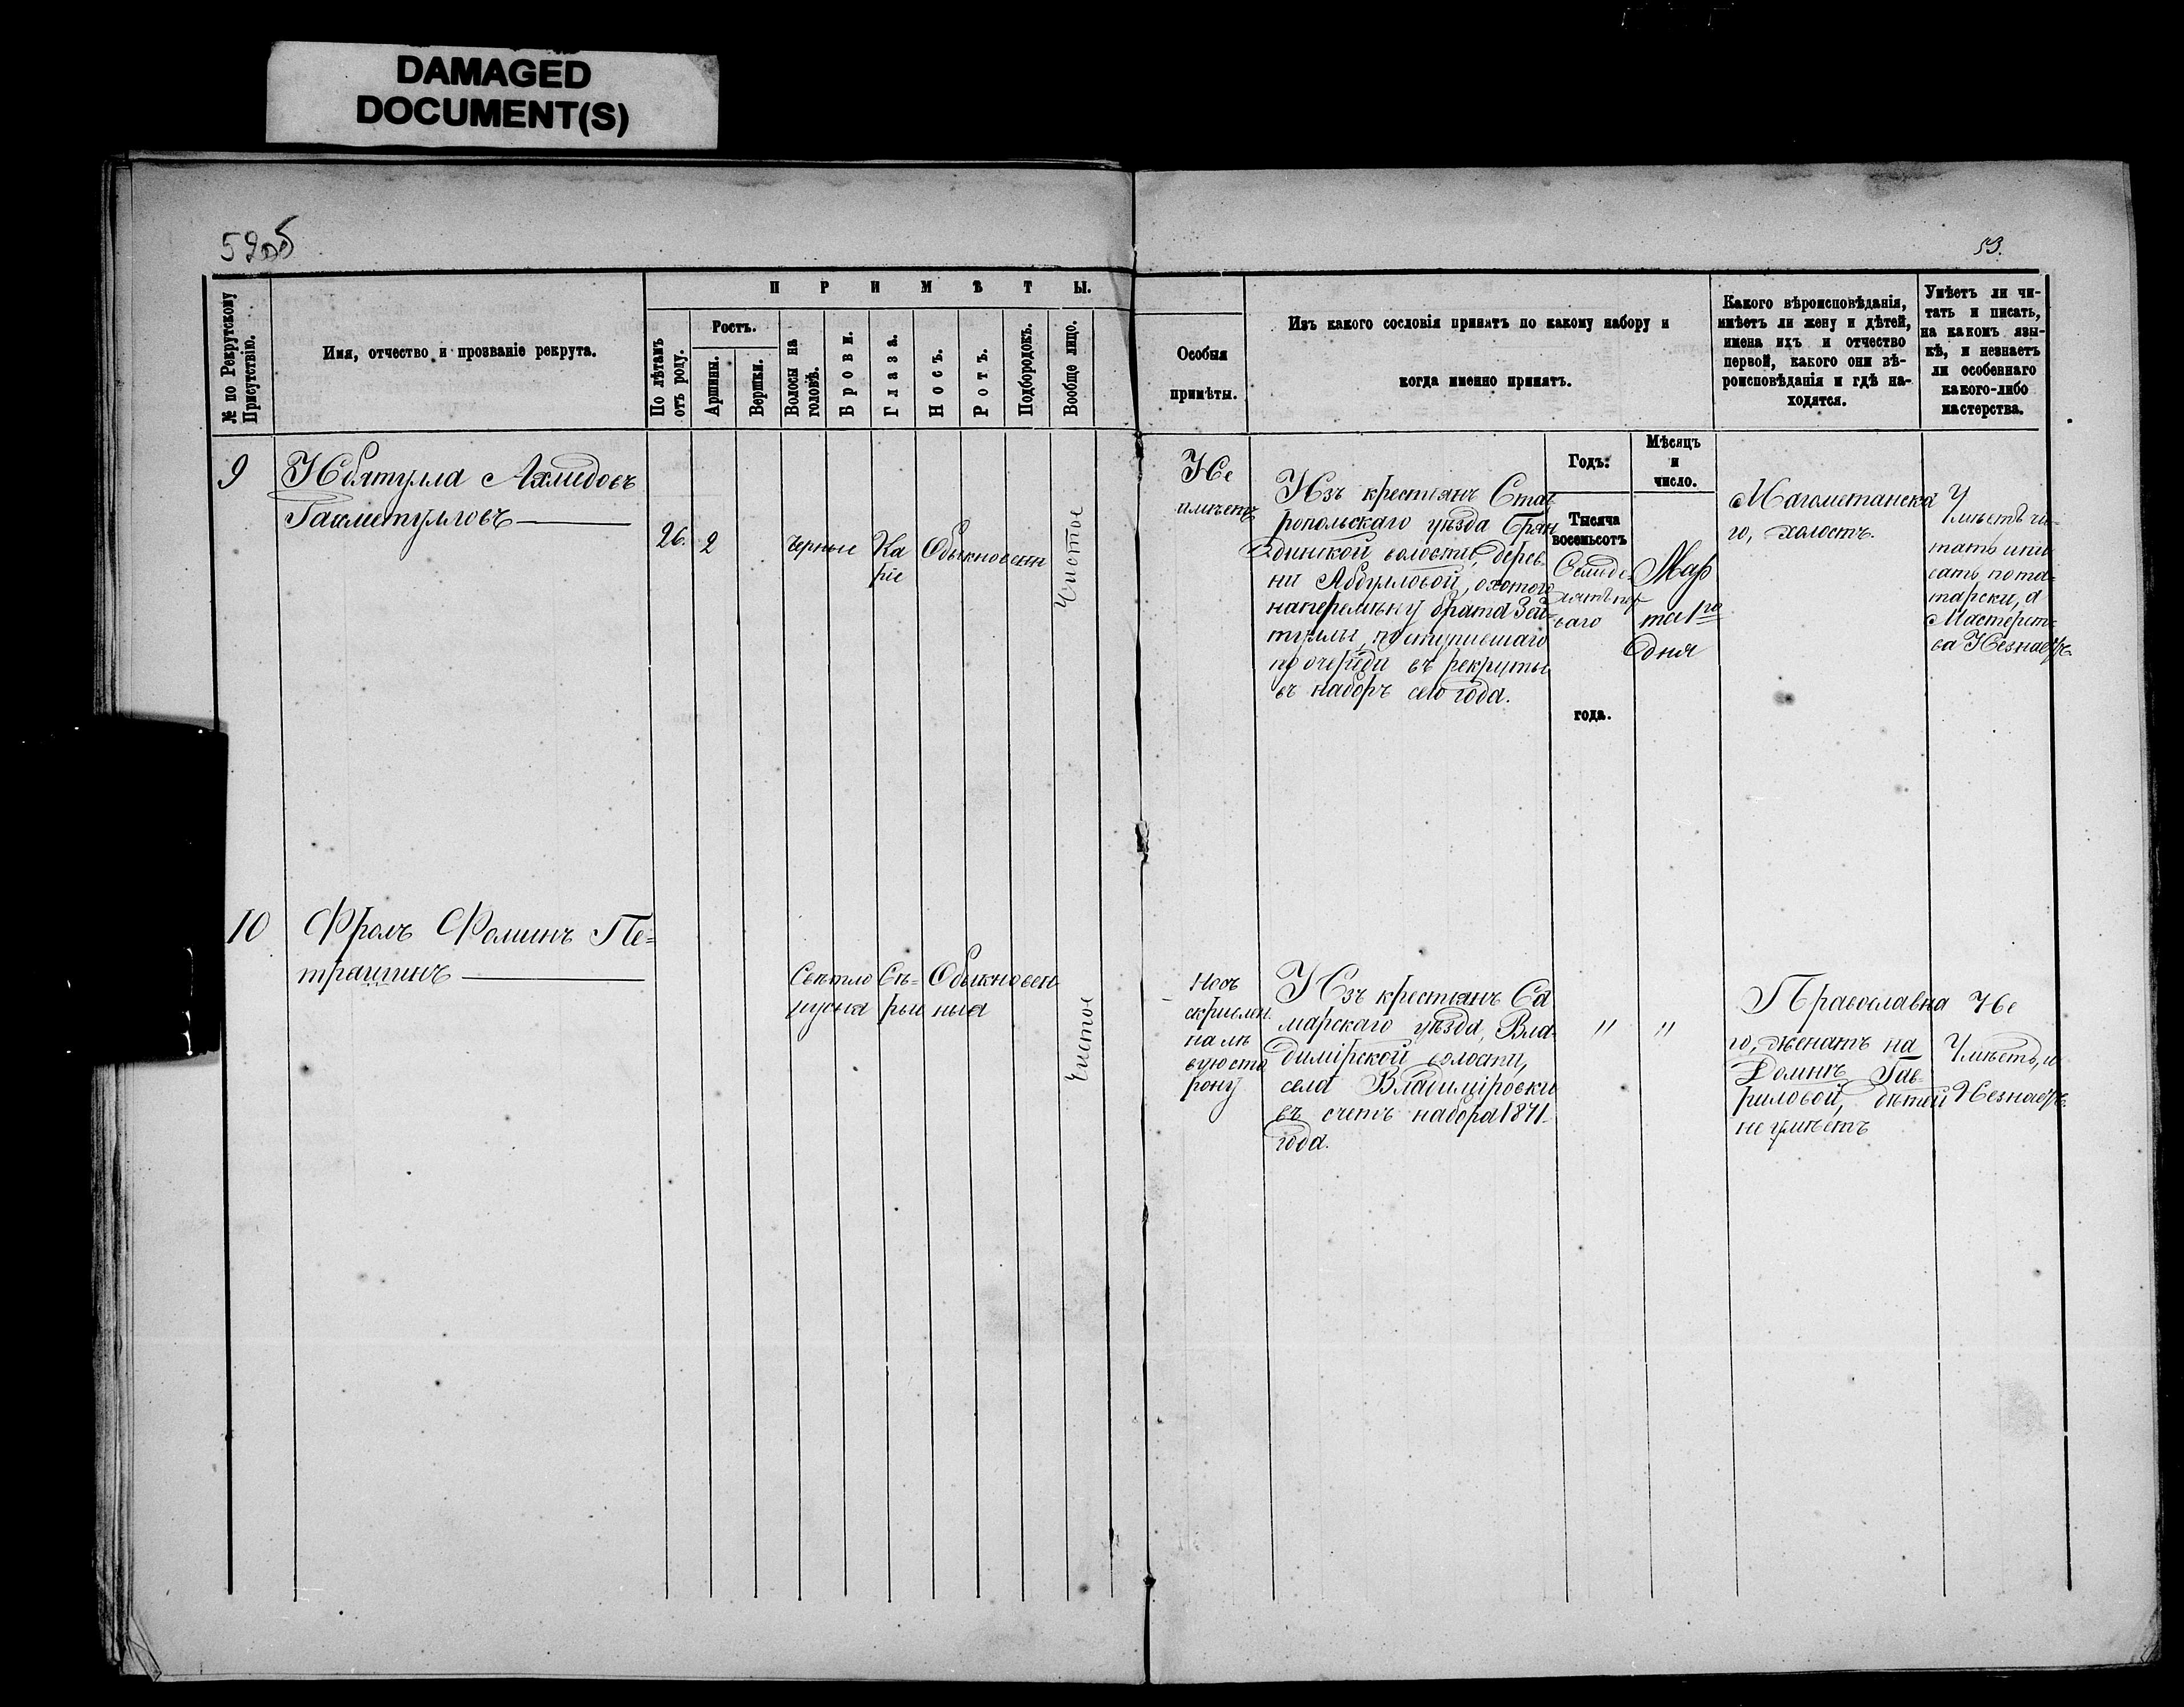 DAMAGED
DOCUMENT(S)
52об
53.
№ по Рекрутскому
Присутствію.
Имя, отчество и прозваніе рекрута.
ПРИМѢТЫ.
По лѣтамъ
отъ роду.
Ростъ.
Аршины.
Вершки.
Волосы на
головѣ.
Брови.
Глаза.
Носъ.
Ротъ.
Подбородокъ.
Вообще лицо.
Особыя
примѣты.
Изъ какого сословія принятъ по какому набору и
когда именно принятъ.
Какого вѣроисповѣданія,
имѣетъ ли жену и дѣтей,
имена ихъ и отчество
первой, какого они вѣ-
роисповѣданія и гдѣ на-
ходятся.
Умѣетъ ли чи-
тать и писать,
на какомъ язы-
кѣ, и незнаетъ
ли особеннаго
какого-либо
мастерства.
9
Ибятулла Ахмедовъ
26.
2
Черные
Ка
ріе
Обыкновенн
Чистое
Не
имѣетъ
Изъ крестьянъ Став
ропольскаго уѣзда Брян
динской волости, дерев-
ни Абдулловой, охотою
наперемѣну брата Зай-
туллы, поступившаго
по очереди въ рекруты
въ наборъ сего года.
Годъ:
Тысяча
восемьсотъ
Семьде-
сятъ пер
ваго
года.
Мѣсяцъ
и
число.
Мар
та 1го
дня
Магометанска
го, холостъ.
Умѣетъ чи-
тать и пи
сать по та-
тарски, а
Мастерст-
ва Незнаетъ.
10
Фролъ Фоминъ Пе=
трашинъ
Свѣтло
русыя
Сѣ=
рые
Обыкновен
ныя
Чистое
Носъ
скривлен.
на лѣ
вую сто
рону
Изъ крестьянъ Са
марскаго уѣзда, Вла-
димірской волости,
села Владиміровки
въ счетъ набора 1871-
года.
"
"
Православна
го, женатъ на
Домнѣ Гав-
риловой, дѣтей
не имѣетъ
Не
Умѣетъ, и
Незнаетъ.